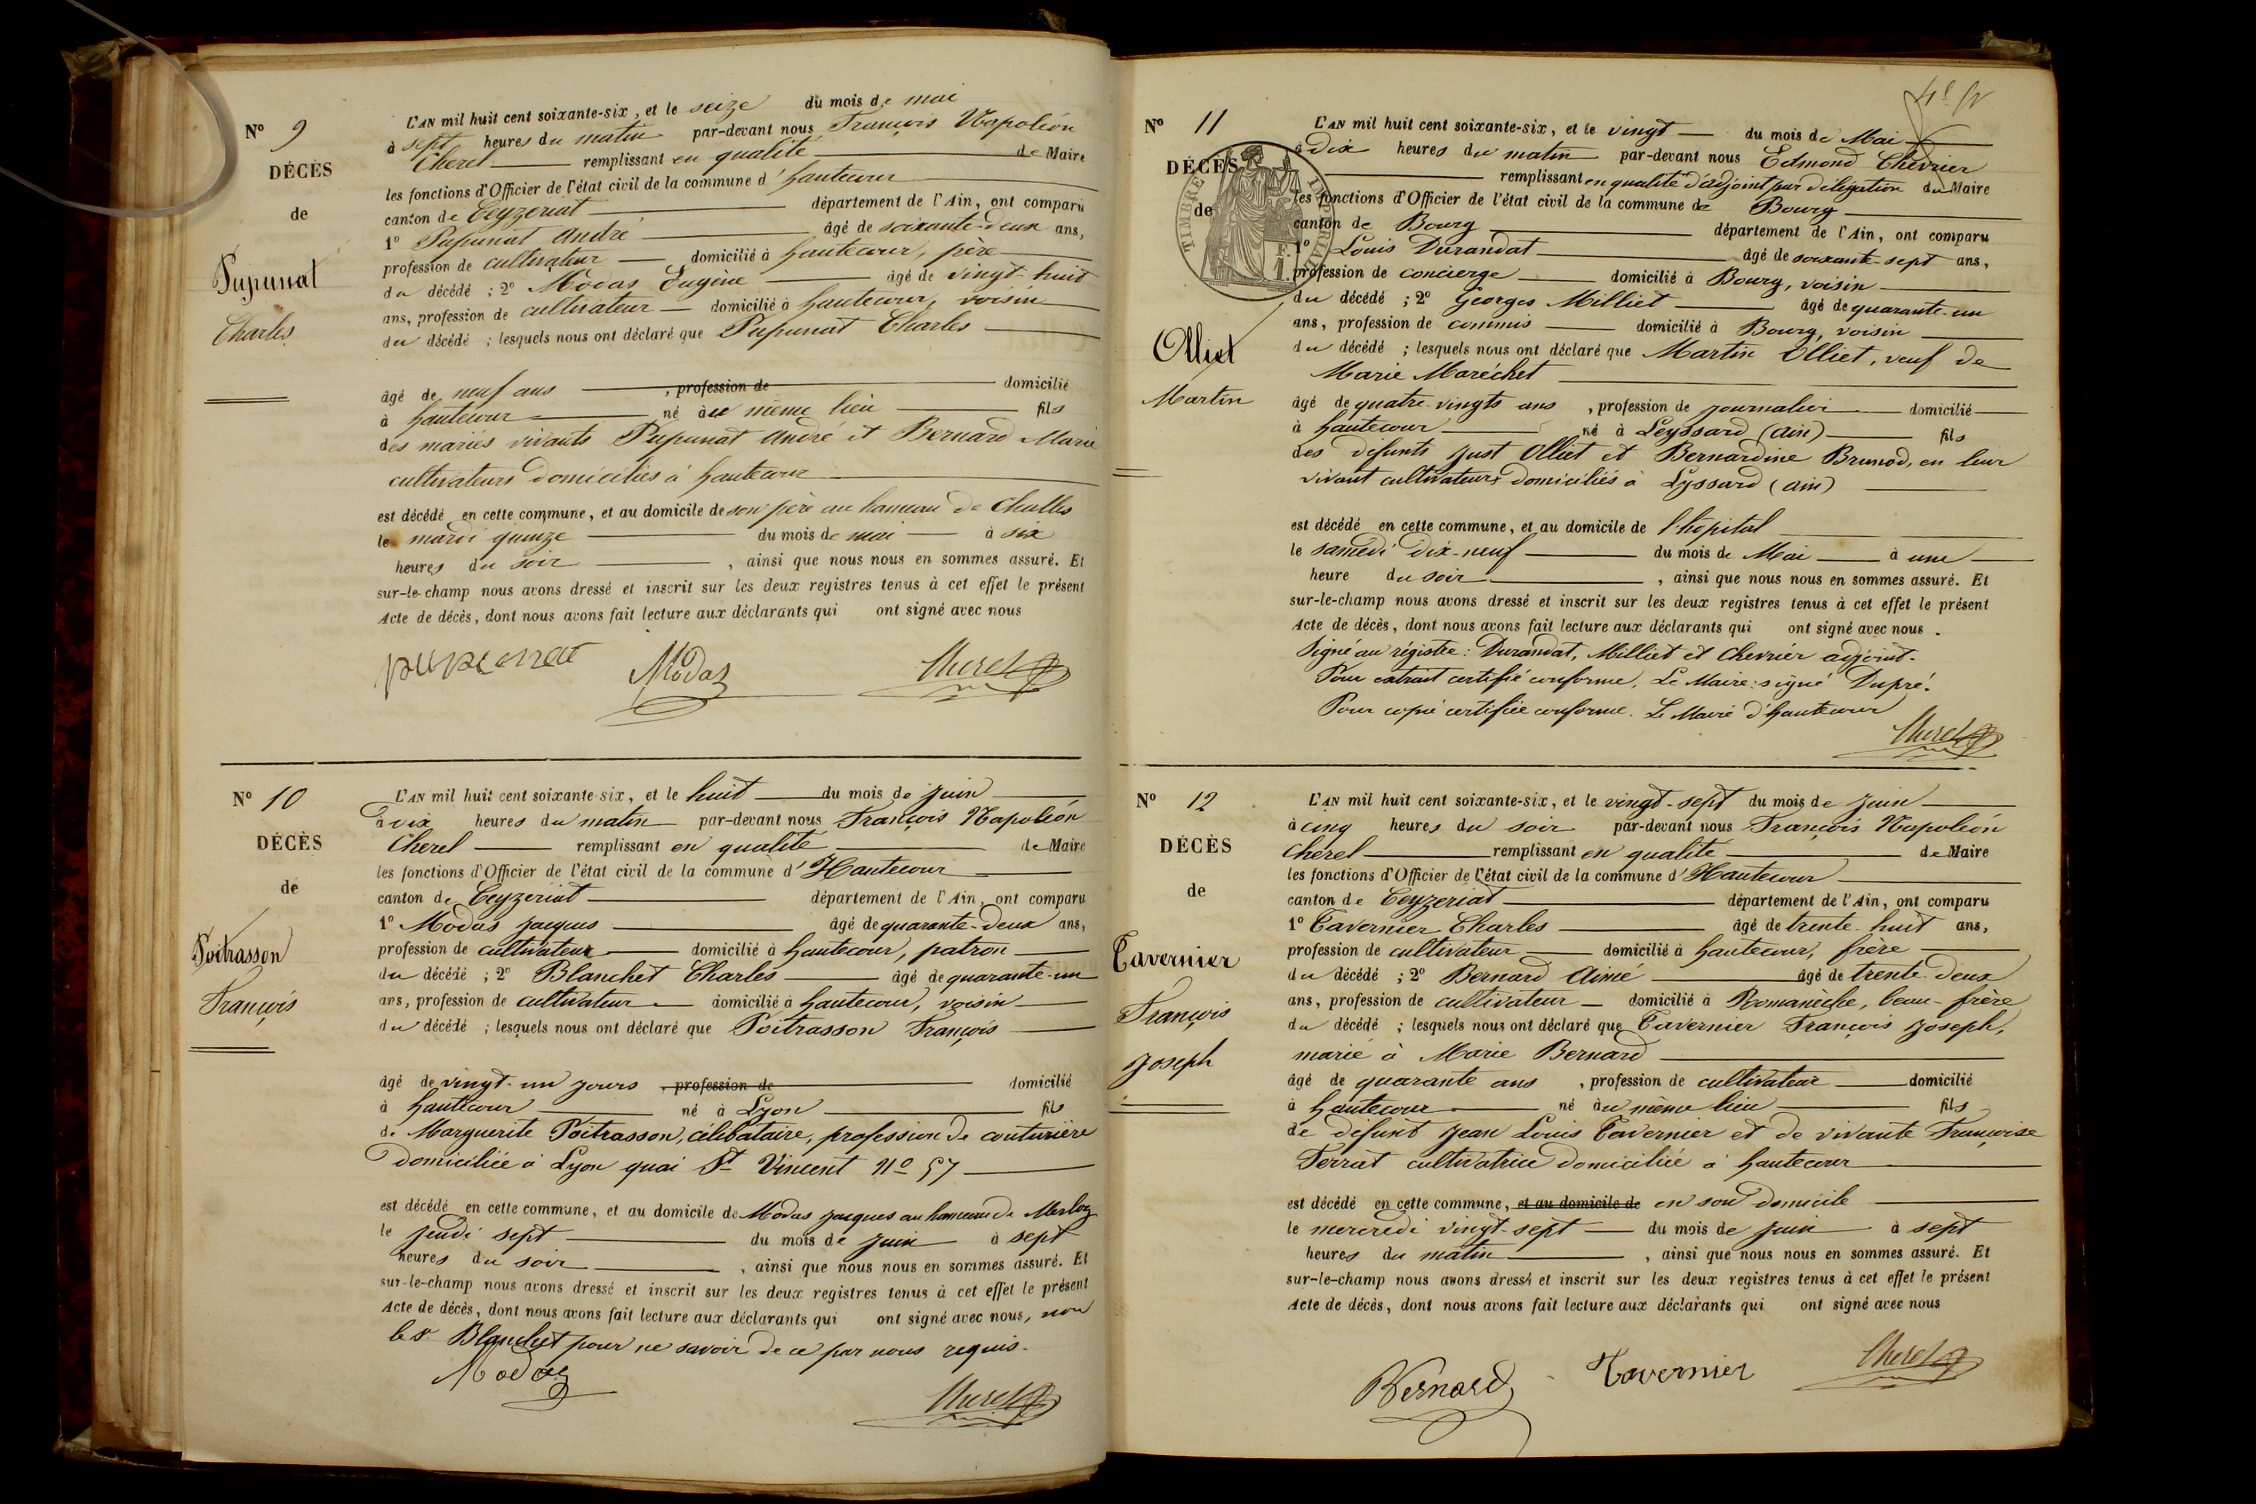 N° 9
DÉCÈS
de
Pupunat
Charles
L'AN mil huit cent soixante-six, et le seize du mois de mai
à sept heures du matin par-devant nous François Napoléon
Cherel remplissant en qualité de Maire
les fonctions d'Officier de l'état civil de la commune d'hautecour
canton de Ceyzeriat département de l'Ain, ont comparu
1° Pupunat André âgé de soixante-deux ans,
profession de cultivateur domicilié à hautecour, père
du décédé ; 2° Modas Eugène âgé de vingt-huit
ans, profession de cultivateur domicilié à hautecour, voisin
du décédé ; lesquels nous ont déclaré que Pupunat Charles
âgé de neuf ans , profession de domicilié
à hautecour né à ce même lieu fils
des mariés vivants Pupunat André et Bernard Marie
cultivateurs domiciliés à hautecour
est décédé en cette commune, et au domicile de son père au hameau de Challes
le mardi quinze du mois de mai à six
heures du soir , ainsi que nous nous en sommes assuré. Et
sur-le-champ nous avons dressé et inscrit sur les deux registres tenus à cet effet le présent
Acte de décès, dont nous avons fait lecture aux déclarants qui ont signé avec nous
pupunat Modas Cherel
N° 10
DÉCÈS
de
Poitrasson
François
L'AN mil huit cent soixante-six, et le huit du mois de juin
à dix heures du matin par-devant nous François Napoléon
Cherel remplissant en qualité de Maire
les fonctions d'Officier de l'état civil de la commune d'Hautecour
canton de Ceyzeriat département de l'Ain, ont comparu
1° Modas Jacques âgé de quarante-deux ans,
profession de cultivateur domicilié à hautecour, patron
du décédé ; 2° Blanchet Charles âgé de quarante-un
ans, profession de cultivateur domicilié à hautecour, voisin
du décédé ; lesquels nous ont déclaré que Poitrasson François
âgé de vingt-un jours , profession de domicilié
à hautecour né à Lyon fils
de Marguerite Poitrasson, célibataire, profession de couturière
domiciliée à Lyon quai St Vincent N° 57
est décédé en cette commune, et au domicile de Modas Jacques au hameau de Merloz
le jeudi sept du mois de juin à sept
heures du soir , ainsi que nous nous en sommes assuré. Et
sur-le-champ nous avons dressé et inscrit sur les deux registres tenus à cet effet le présent
Acte de décès, dont nous avons fait lecture aux déclarants qui ont signé avec nous, non
le Sr Blanchet pour ne savoir de ce par nous requis.
Modas
Cherel
N° 11
DÉCÈS
de
TIMBRE IMPERIAL
Olliet
Martin
L'AN mil huit cent soixante-six, et le vingt du mois de Mai
à Dix heures du matin par-devant nous Edmond Chevrier
remplissant en qualité d'adjoint par délégation du Maire
les fonctions d'Officier de l'état civil de la commune de Bourg
canton de Bourg département de l'Ain, ont comparu
1° Louis Durandat âgé de soixante sept ans,
profession de concierge domicilié à Bourg, voisin
du décédé ; 2° Georges Milliet âgé de quarante-un
ans, profession de commis domicilié à Bourg, voisin
du décédé ; lesquels nous ont déclaré que Martin Olliet, veuf de
Marie Maréchet
âgé de quatre-vingts ans , profession de journalier domicilié
à hautecour né à Leyssard (Ain) fils
des défunts Just Olliet et Bernardine Brunod, en leur
vivant cultivateurs domiciliés à Lyssard (Ain)
est décédé en cette commune, et au domicile de l'hôpital
le samedi dix-neuf du mois de Mai à une
heure du soir , ainsi que nous nous en sommes assuré. Et
sur-le-champ nous avons dressé et inscrit sur les deux registres tenus à cet effet le présent
Acte de décès, dont nous avons fait lecture aux déclarants qui ont signé avec nous.
Signé au régistre : Durandat, Milliet et Chevrier adjoint.
Pour extrait certifié conforme. Le Maire : signé Dupré.
Pour copie certifiée conforme. Le Maire d'hautecour
Cherel
N° 12
DÉCÈS
de
Tavernier
François
Joseph
L'AN mil huit cent soixante-six, et le vingt-sept du mois de juin
à cinq heures du soir par-devant nous François Napoléon
Cherel remplissant en qualité de Maire
les fonctions d'Officier de l'état civil de la commune d'Hautecour
canton de Ceyzeriat département de l'Ain, ont comparu
1° Tavernier Charles âgé de trente-huit ans,
profession de cultivateur domicilié à hautecour, frère
du décédé ; 2° Bernard Aimé âgé de trente-deux
ans, profession de cultivateur domicilié à Romanèche, beau-frère
du décédé ; lesquels nous ont déclaré que Tavernier François Joseph,
marié à Marie Bernard
âgé de quarante ans , profession de cultivateur domicilié
à hautecour né au même lieu fils
de défunt Jean Louis Tavernier et de vivante Françoise
Ferrat cultivatrice domiciliée à hautecour
est décédé en cette commune, et au domicile de en son domicile
le mercredi vingt-sept du mois de juin à sept
heures du matin , ainsi que nous nous en sommes assuré. Et
sur-le-champ nous avons dressé et inscrit sur les deux registres tenus à cet effet le présent
Acte de décès, dont nous avons fait lecture aux déclarants qui ont signé avec nous
Bernard Tavernier Cherel